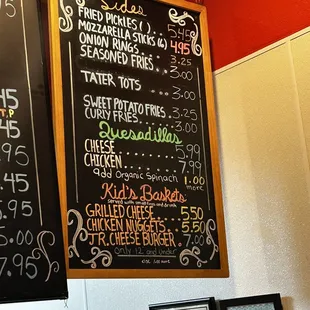 Sides
FRIED PICKLES ( ) . . 5.45
MOZZARELLA STICKS (6) 4.95
ONION RINGS . . . 3.25
SEASONED FRIES . .
3.00
TATER TOTS
3.00
SWEET POTATO FRIES . 3.25
CURLY FRIES . . . . 3.00
Quesadillas
CHEESE . . . . . . 5.99
CHICKEN . . . . . 7.99
add Organic Spinach 1.00
more
Kid's Baskets
Served with small fries and drink
GRILLED CHEESE 5.50
CHICKEN NUGGETS . 5.50
JR. CHEESE BURGER . 7.00
Only 12 and under
45
T.P
45
.95
.45
.95
5.00
7.95